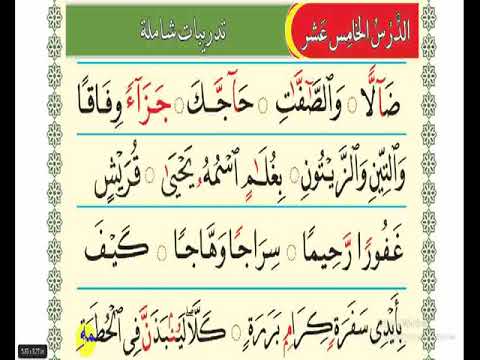 الدَّرْسُ الخَامِسَ عَشَر
تدريبات شاملة
ضَآلًّا ○ وَٱلصَّٰٓفَّٰتِ ○ حَآجَّكَ ○ جَزَآءً وِفَاقًا
وَٱلتِّينِ وَٱلزَّيْتُونِ ○ بِغُلَٰمٍ ٱسْمُهُۥ يَحْيَىٰ ○ قُرَيْشٍ
غَفُورًا رَّحِيمًا ○ سِرَاجًا وَهَّاجًا ○ كَيْفَ
بِأَيْدِى سَفَرَةٍ ○ كِرَامٍۭ بَرَرَةٍ ○ كَلَّا ۖ لَيُنۢبَذَنَّ فِى ٱلْحُطَمَةِ